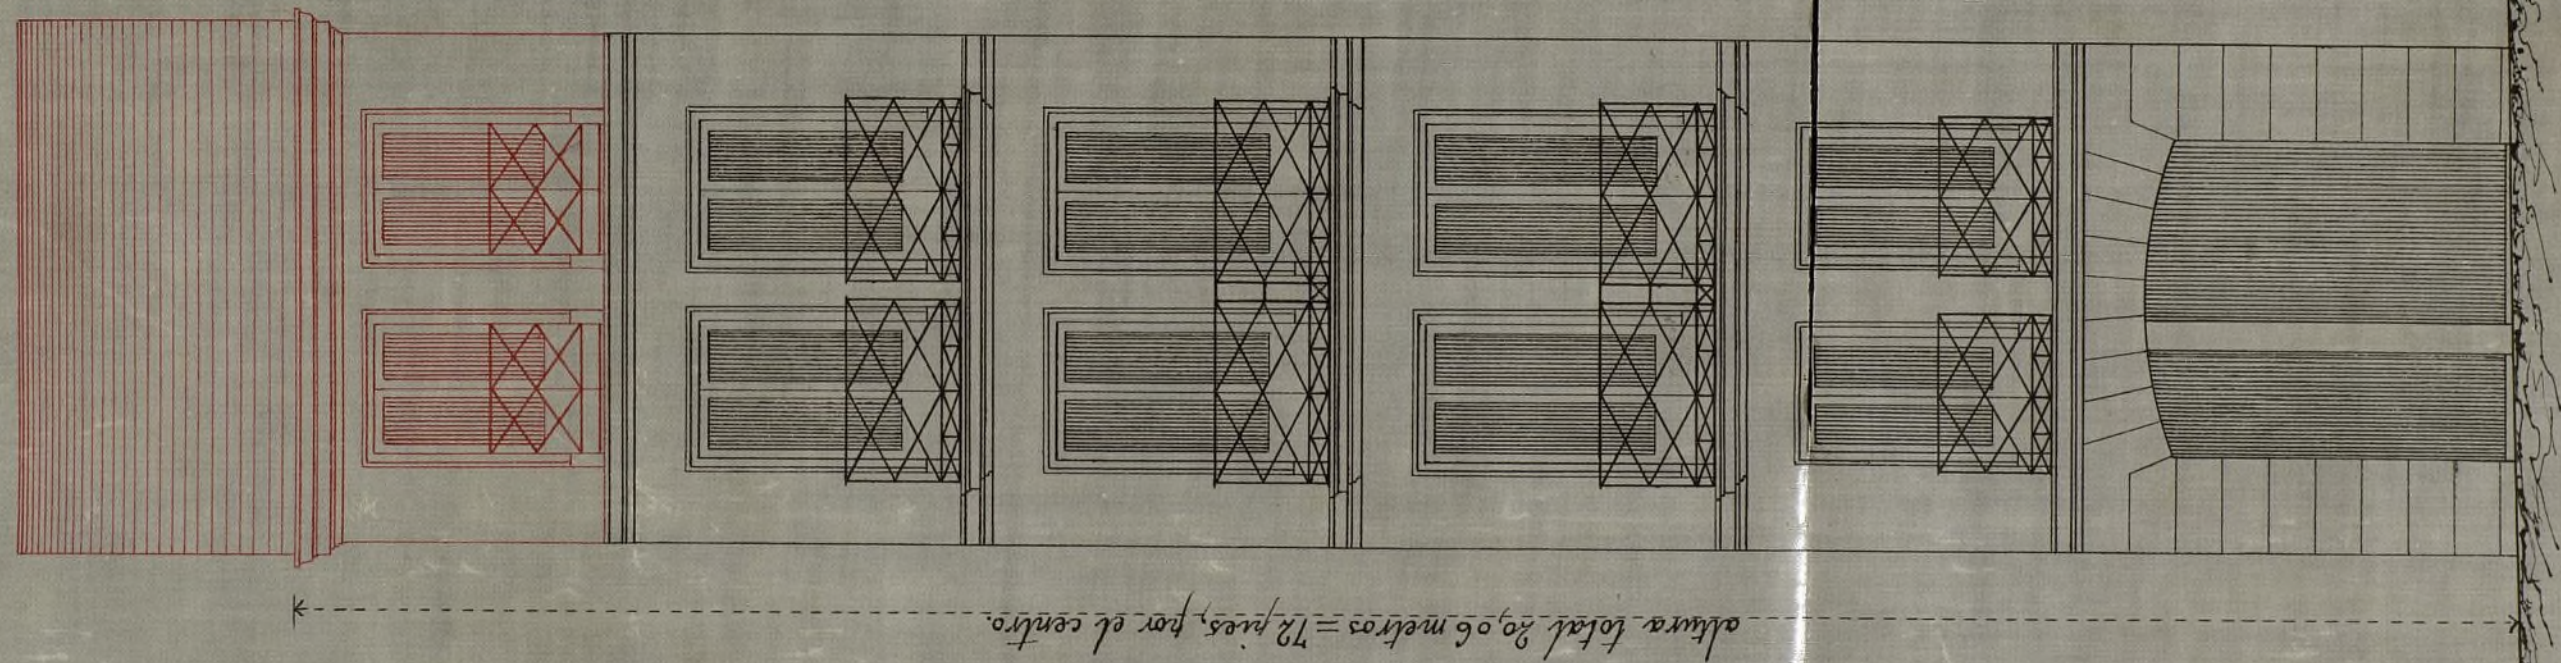 altura total 20,06 metros = 72 pies, por el centro.